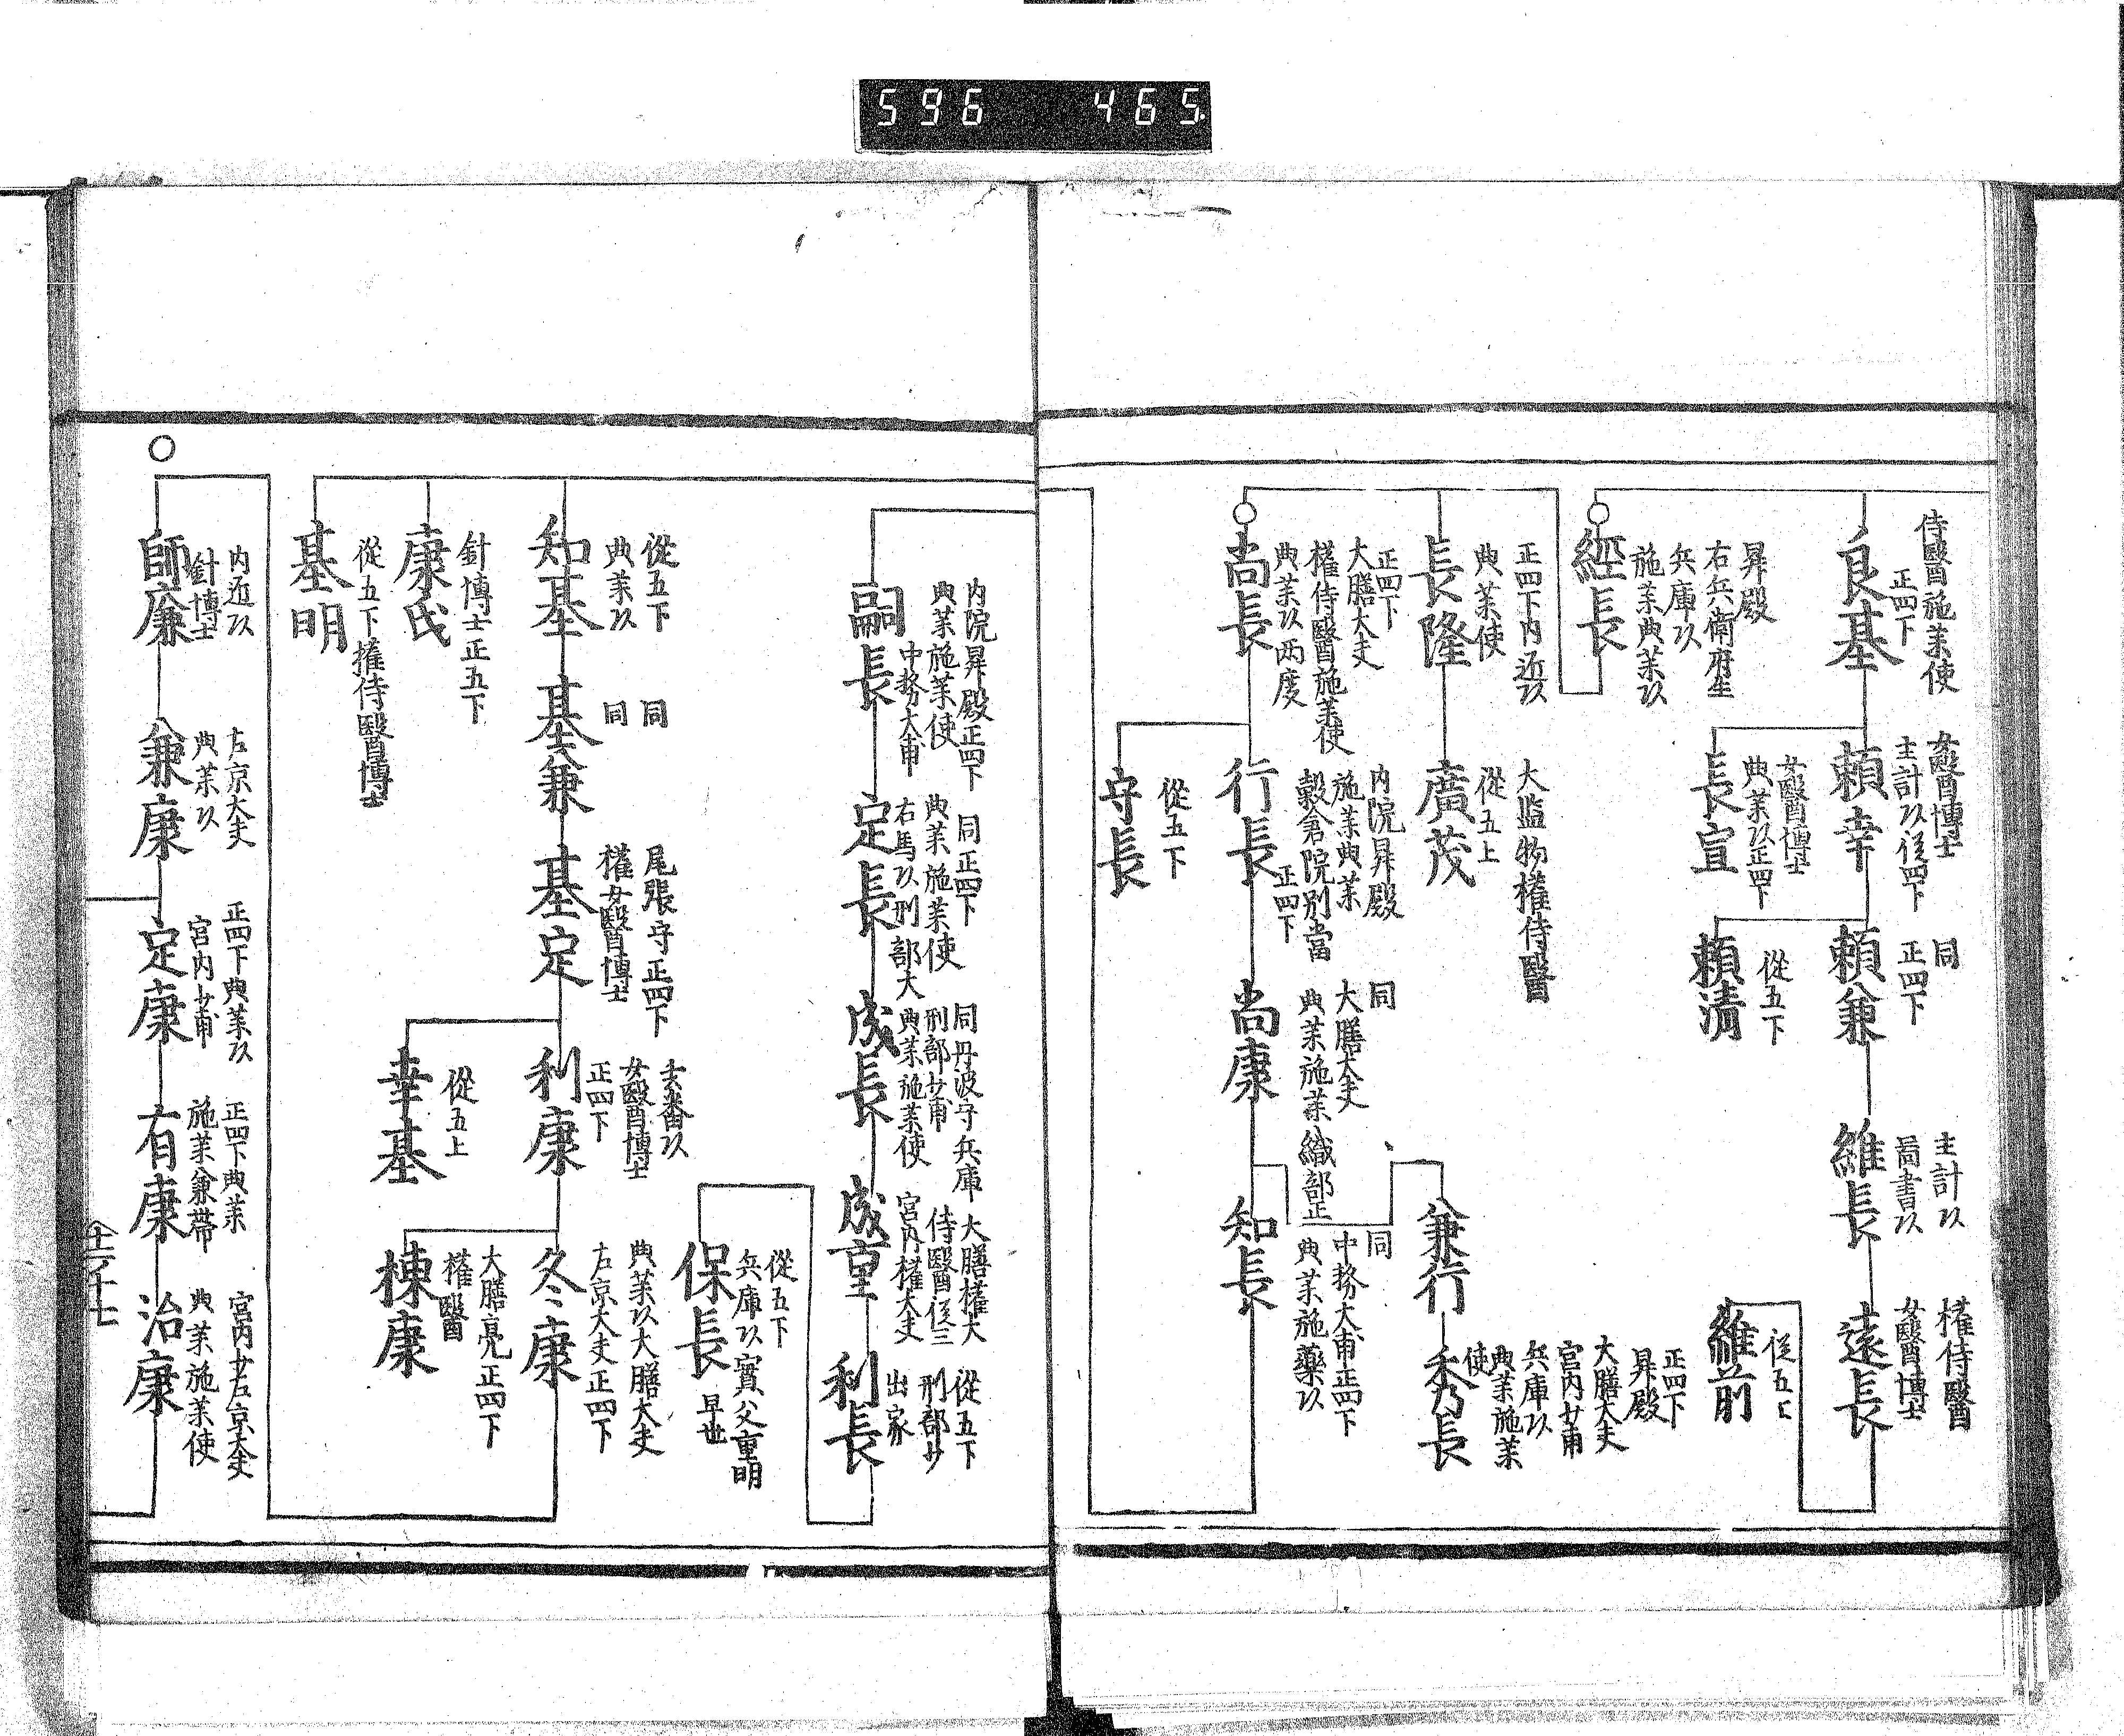 596 465
侍醫施薬使
正四下
良基
女醫博士
主計以従四下
頼幸
同
正四下
頼兼
主計以
圖書以
維長
権侍醫
女醫博士
遠長
従五上
維前
女醫博士
典薬以正四下
長宣
従五下
頼清
昇殿
右兵衛府生
兵庫以
施薬典薬以
經長
正四下内匠以
典薬使
長隆
大監物権侍醫
從五上
廣茂
正四下
大膳大夫
権侍醫施薬使
典薬以両度
尚長
内院昇殿
施薬典薬
穀倉院別當
正四下
行長
同
大膳大夫
典薬施薬織部正
尚康
同
中務大甫正四下
典薬施藥以
知長
兼行
正四下
昇殿
大膳大夫
宮内少甫
兵庫以
典薬施薬
使
秀長
從五下
守長
内院昇殿正四下
典薬施薬使
中務大甫
嗣長
同正四下
典薬施薬使
右馬以刑部大
定長
同丹波守兵庫
刑部少甫
典薬施薬使
成長
大膳権大
侍醫従三
宮内権大夫
成重
從五下
刑部少
出家
利長
從五下
兵庫以實父重明
早世
保長
從五下
典薬以
知基
同
同
基兼
尾張守正四下
権女醫博士
基定
玄番以
女醫博士
正四下
利康
典薬以大膳大夫
右京大夫正四下
冬康
大膳亮正四下
権醫
棟康
從五上
幸基
針博士正五下
康氏
從五下権侍醫博士
基明
内匠以
針博士
師康
左京大夫
典薬以
兼康
正四下典薬以
宮内少甫
定康
正四下典薬
施薬兼帯
有康
宮内少左京大夫
典薬施薬使
治康